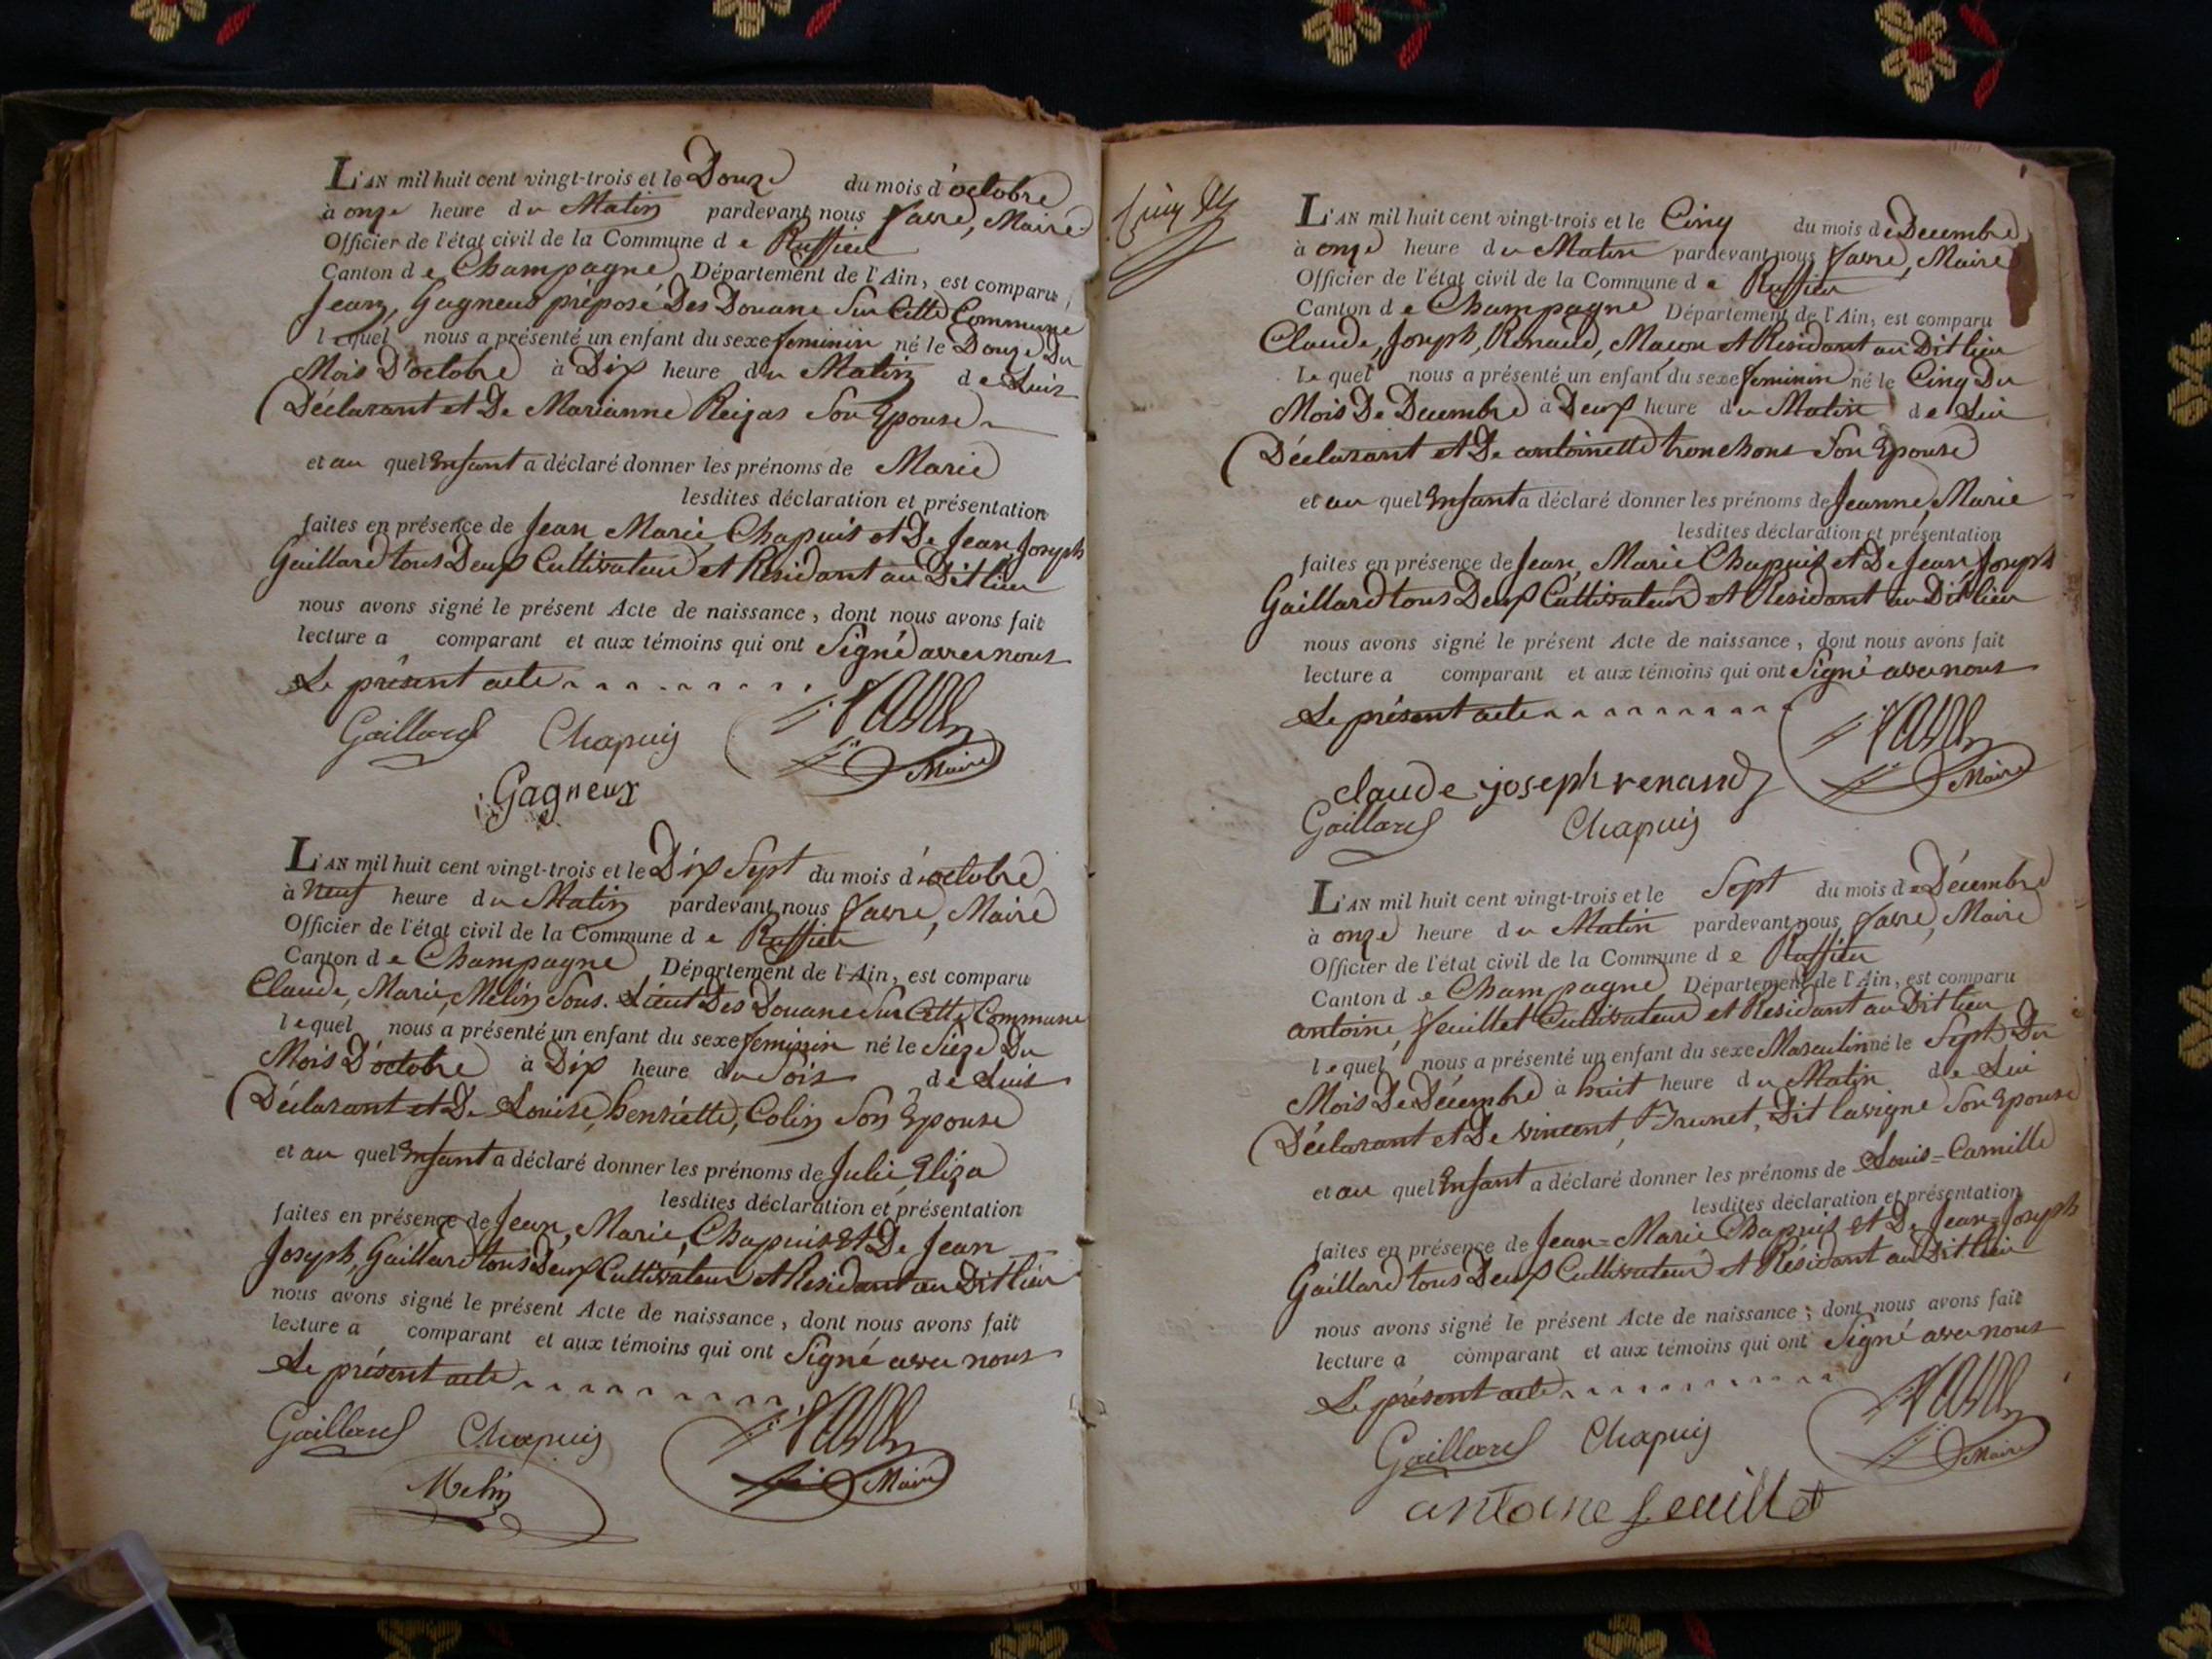 L'AN mil huit cent vingt-trois et le Douze du mois d'octobre
à onze heure du Matin pardevant nous favre, Maire
Officier de l'état civil de la Commune de Ruffieu
Canton de Champagne Département de l'Ain, est comparu
Jean, Gagneux préposé Des Douane Sur Cette Commune
lequel nous a présenté un enfant du sexe feminin né le Douze Du
Mois D'octobre à Dix heure du Matin de Luis
Déclarant et De Marianne Reijas Son Epouse
et au quel Enfant a déclaré donner les prénoms de Marie
lesdites déclaration et présentation
faites en présence de Jean Marie, Chapuis et De Jean, Joseph
Gaillard tous Deux Cultivateur et Residant au Dit lieu
nous avons signé le présent Acte de naissance, dont nous avons fait
lecture a comparant et aux témoins qui ont Signé avec nous
Le présent acte
Gaillard Chapuis favre
Maire
Gagneux
L'AN mil huit cent vingt-trois et le Dix Sept du mois d'octobre
à Neuf heure du Matin pardevant nous favre, Maire
Officier de l'état civil de la Commune de Ruffieu
Canton de Champagne Département de l'Ain, est comparu
Claude, Marie, Melin Sous. Lieut Des Douane Sur Cette Commune
lequel nous a présenté un enfant du sexe feminin né le Sieze Du
Mois D'octobre à Dix heure du Soir de Luis
Déclarant et De Louise, henriette, Colin Son Epouse
et au quel Enfant a déclaré donner les prénoms de Julie, Eliza
lesdites déclaration et présentation
faites en présence de Jean, Marie, Chapuis Et De Jean
Joseph, Gaillard tous Deux Cultivateur et Residant au Dit lieu
nous avons signé le présent Acte de naissance, dont nous avons fait
lecture a comparant et aux témoins qui ont Signé avec nous
Le présent acte
Gaillard Chapuis favre
Maire
Melin
L'AN mil huit cent vingt-trois et le Cinq du mois de Decembre
à onze heure du Matin pardevant nous favre, Maire
Officier de l'état civil de la Commune de Ruffieu
Canton de Champagne Département de l'Ain, est comparu
Claude, Joseph, Renaud, Maçon et Residant au Dit lieu
Lequel nous a présenté un enfant du sexe feminin né le Cinq Du
Mois De Decembre à Deux heure du Matin de Lui
Déclarant et De antoinette tronchons Son Epouse
et au quel Enfant a déclaré donner les prénoms de Jeanne, Marie
lesdites déclaration et présentation
faites en présence de Jean, Marie Chapuis et De Jean Joseph
Gaillard tous Deux Cultivateur et Residant au Dit lieu
nous avons signé le présent Acte de naissance, dont nous avons fait
lecture a comparant et aux témoins qui ont Signé avec nous
Le présent acte
favre
Maire
claude joseph renaud
Gaillard Chapuis
L'AN mil huit cent vingt-trois et le Sept du mois de Décembre
à onze heure du Matin pardevant nous, favre, Maire
Officier de l'état civil de la Commune de Ruffieu
Canton de Champagne Département de l'Ain, est comparu
antoine, feuillet Cultivateur et Residant au Dit lieu
lequel nous a présenté un enfant du sexe Masculin né le Sept Du
Mois De Décembre à huit heure du Matin de Lui
Déclarant et De vincent, Brunet, Dit lavigne Son Epouse
et au quel Enfant a déclaré donner les prénoms de Louis=Camille
lesdites déclaration et présentation
faites en présence de Jean=Marie Chapuis et De Jean=Joseph
Gaillard tous Deux Cultivateur et Résidant au Dit lieu
nous avons signé le présent Acte de naissance; dont nous avons fait
lecture a comparant et aux témoins qui ont Signé avec nous
Le présent acte
Gaillard Chapuis favre
Maire
antoine feuillet